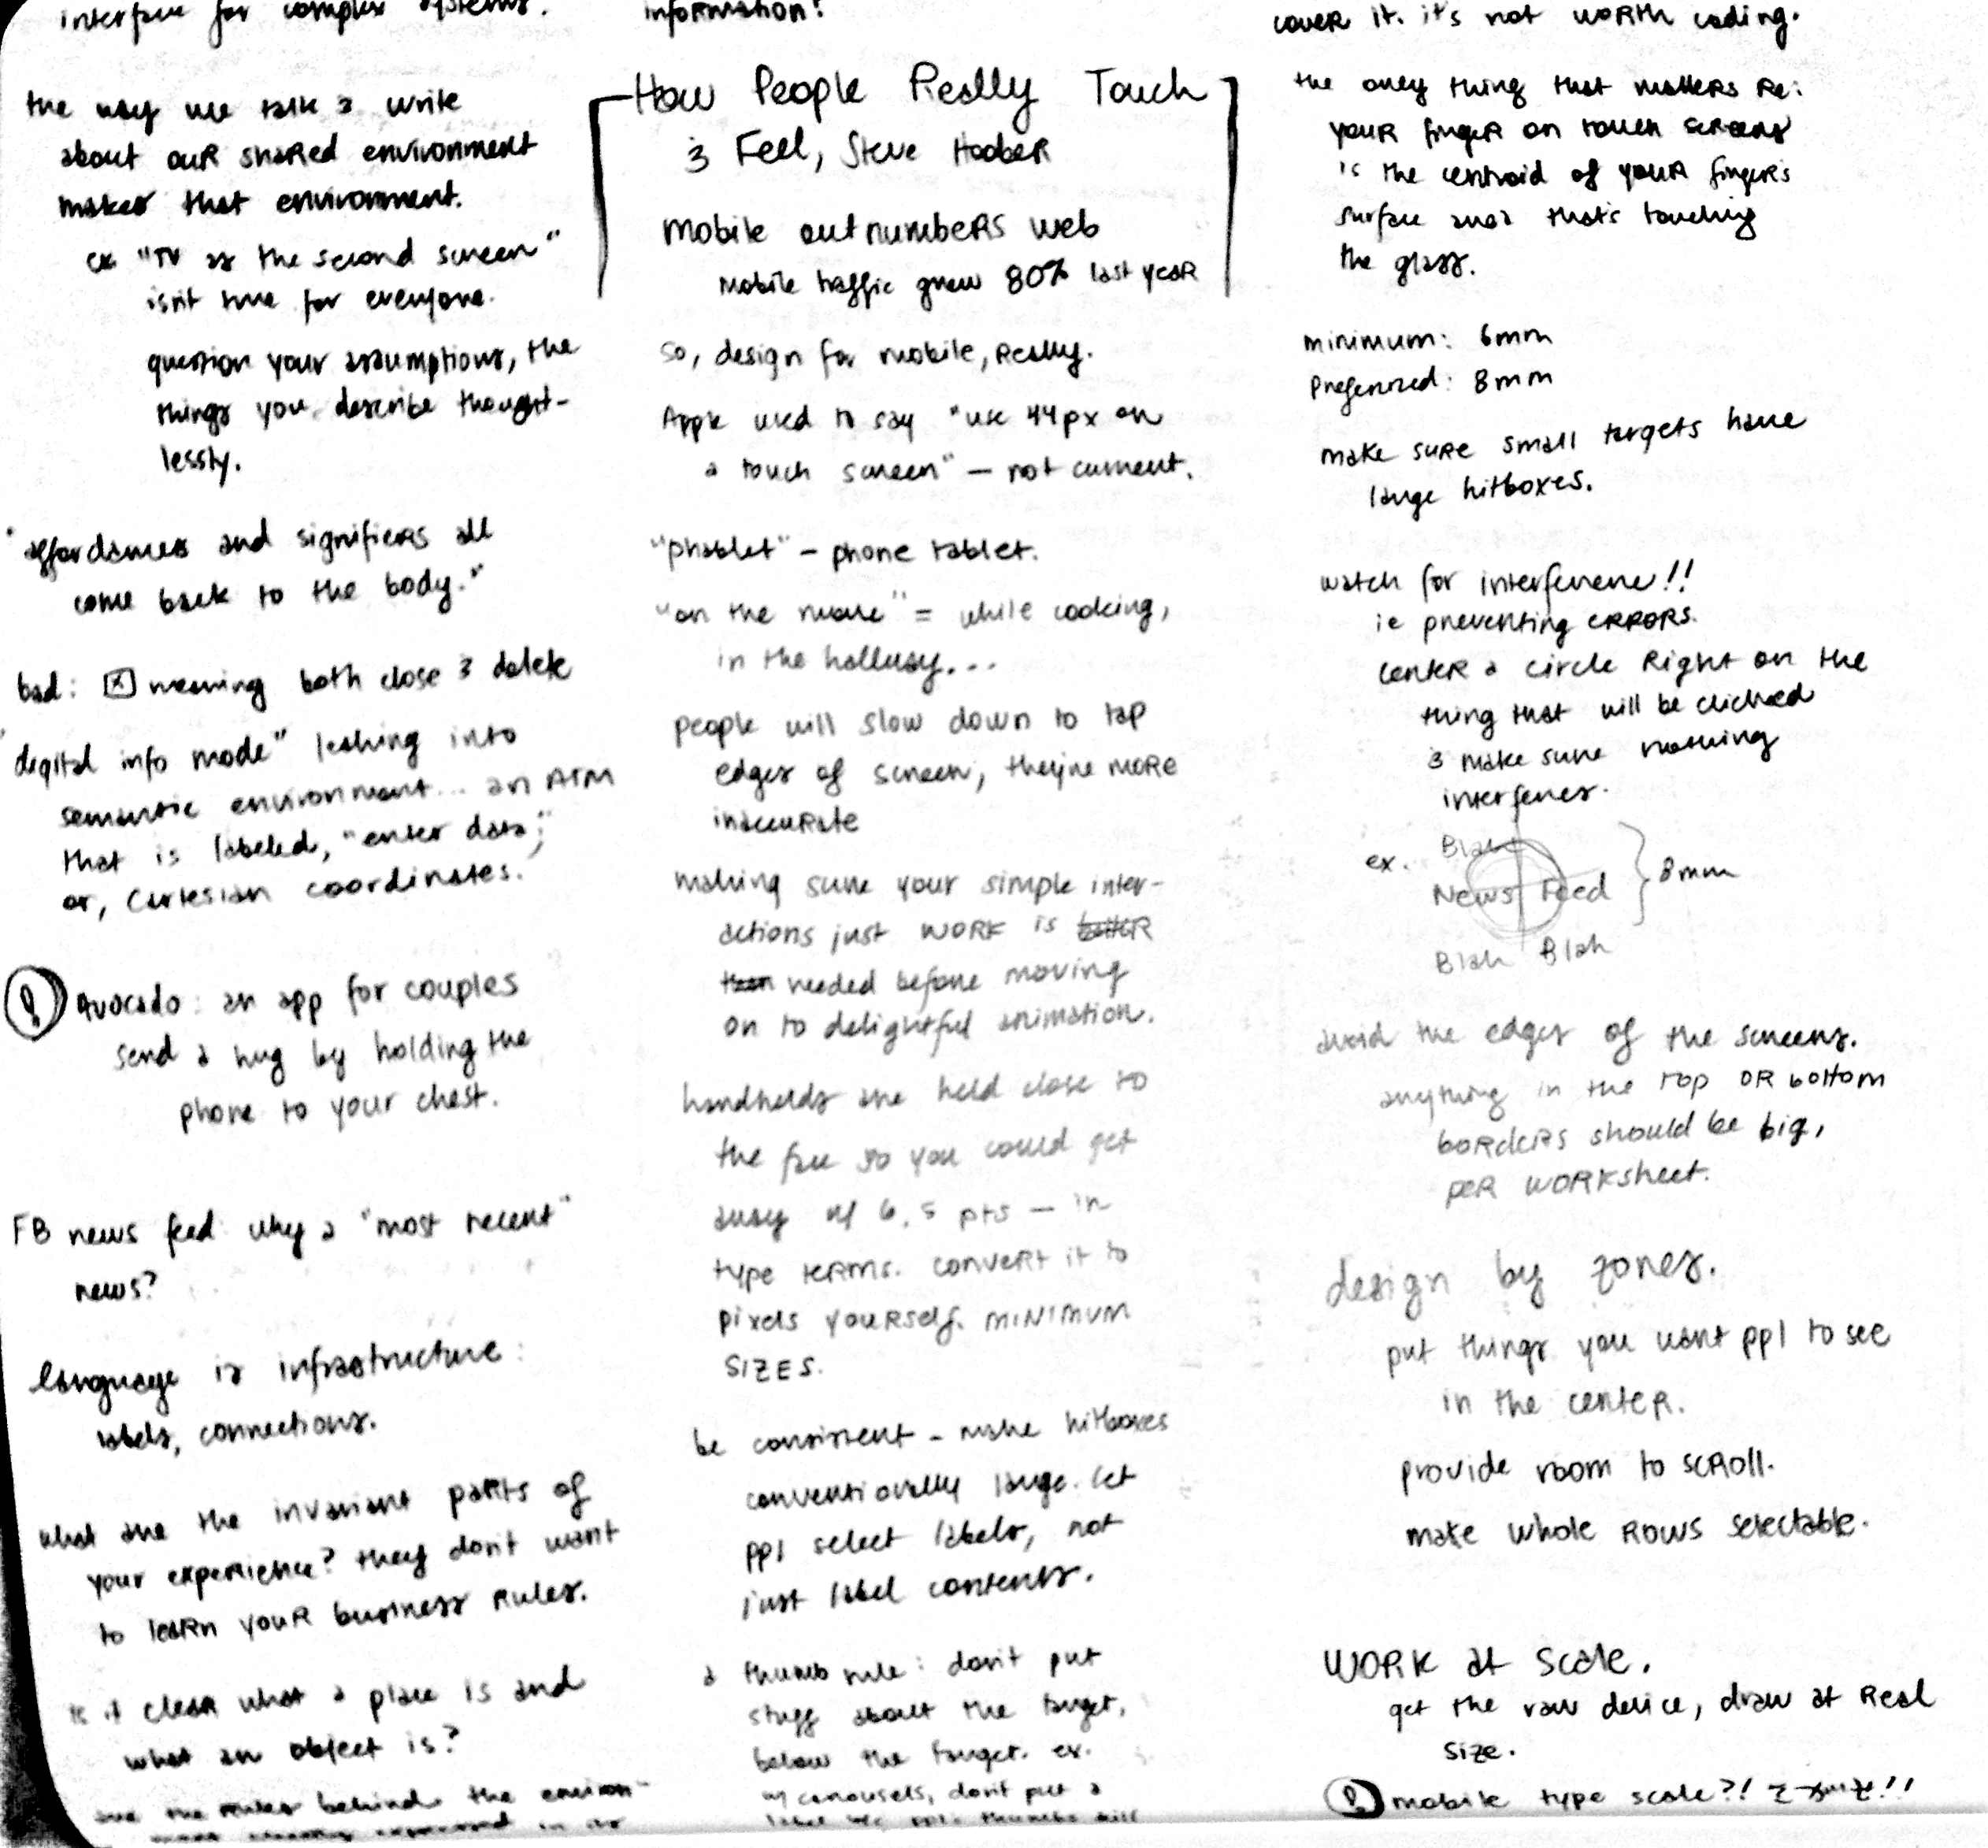 interface for complex systems.
the way we talk & write
about our shared environment
makes that environment.
ex "TV as the second screen"
isn't true for everyone.
question your assumptions, the
things you describe thought-
lessly.
"affordances and signifiers all
come back to the body."
bad: [x] meaning both close & delete
"digital info mode" leaking into
semantic environment... an ATM
that is labeled, "enter data;"
or, Cartesian coordinates.
! avocado: an app for couples
send a hug by holding the
phone to your chest.
FB news feed: why a "most recent"
news?
language is infrastructure:
labels, connections.
what are the invariant parts of
your experience? they don't want
to learn your business rules.
is it clear what a place is and
what an object is?
are the rules behind the environ-
information?
How People Really Touch
& Feel, Steve Hoober
mobile outnumbers web
mobile traffic grew 80% last year
so, design for mobile, really.
Apple used to say "use 44px on
a touch screen" – not current.
"phablet" – phone tablet.
"on the move" = while cooking,
in the hallway...
people will slow down to tap
edges of screen, they're more
inaccurate
making sure your simple inter-
actions just work is better
than needed before moving
on to delightful animation.
handhelds are held close to
the face so you could get
away w/ 6.5 pts – in
type terms. convert it to
pixels yourself. minimum
SIZES.
be consistent – make hitboxes
conventionally large. let
ppl select labels, not
just label contents.
a thumb rule: don't put
stuff about the target,
below the target. ex.
w/ carousels, don't put a
label b/c ppl's thumbs will
cover it. it's not worth coding.
the only thing that matters re:
your finger on touch screens
is the centroid of your finger's
surface area that's touching
the glass.
minimum: 6mm
preferred: 8mm
make sure small targets have
large hitboxes.
watch for interference!!
ie preventing errors.
center a circle right on the
thing that will be clicked
& make sure nothing
interferes.
ex. Blah
News Feed } 8mm
Blah Blah
avoid the edges of the screens.
anything in the top or bottom
borders should be big,
per worksheet.
design by zones.
put things you want ppl to see
in the center.
provide room to scroll.
make whole rows selectable.
work at scale.
get the raw device, draw at real
size.
! mobile type scale?!